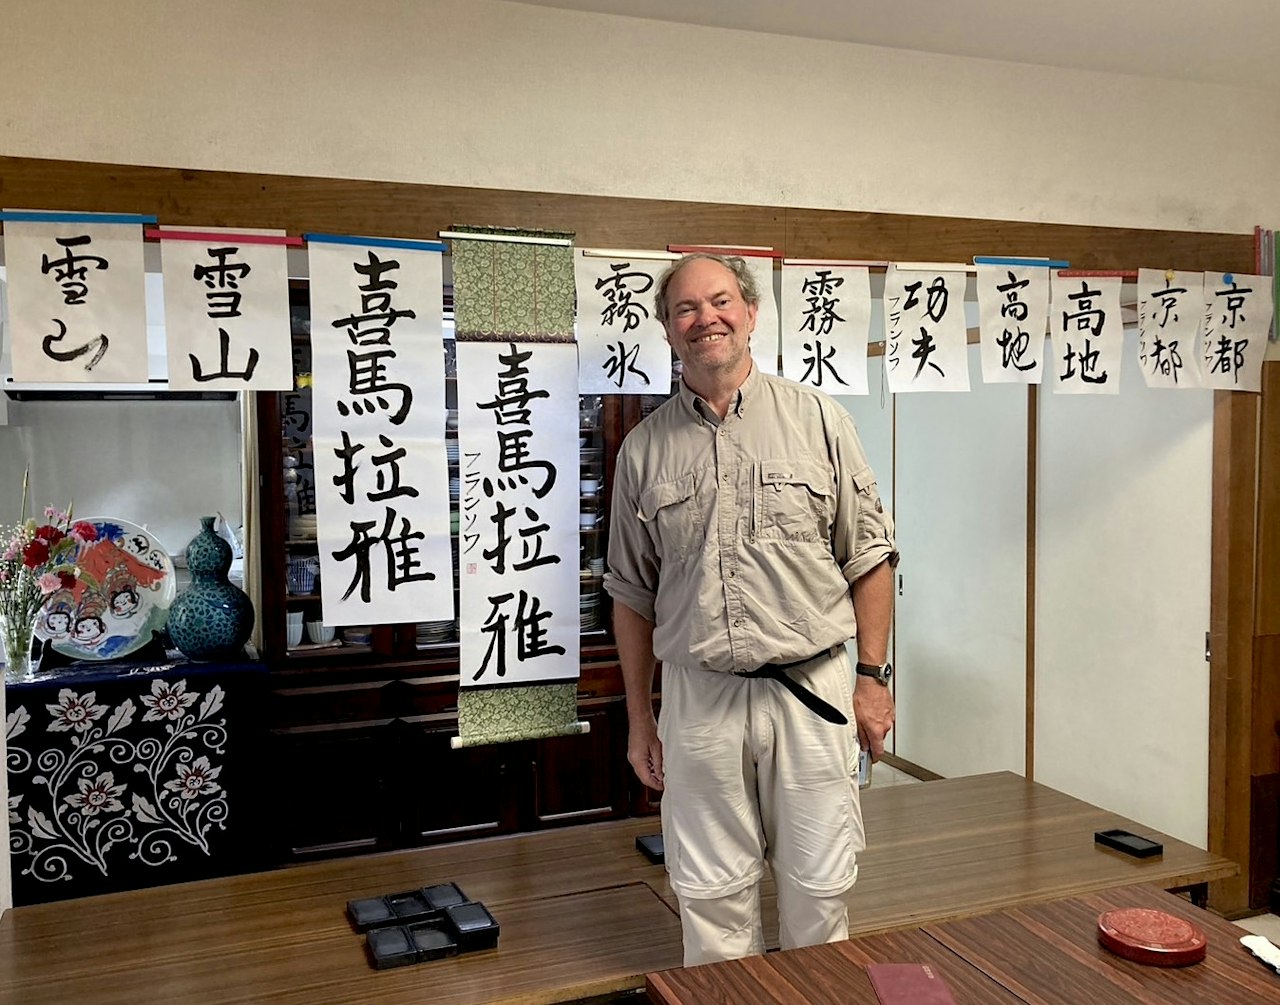 雪山
雪山
喜馬拉雅
喜馬拉雅
フランソワ
霧氷
霧氷
功夫
フランソワ
高地
高地
京都
フランソワ
京都
フランソワ